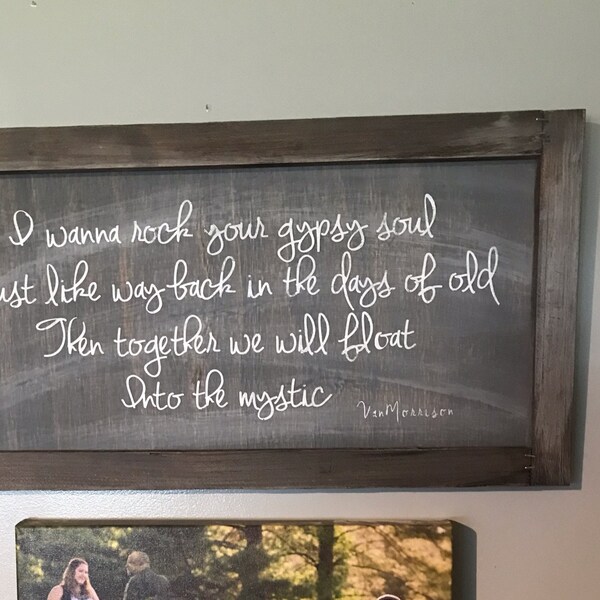 I wanna rock your gypsy soul
ust like way back in the days of old
Then together we will float
Into the mystic
Van Morrison